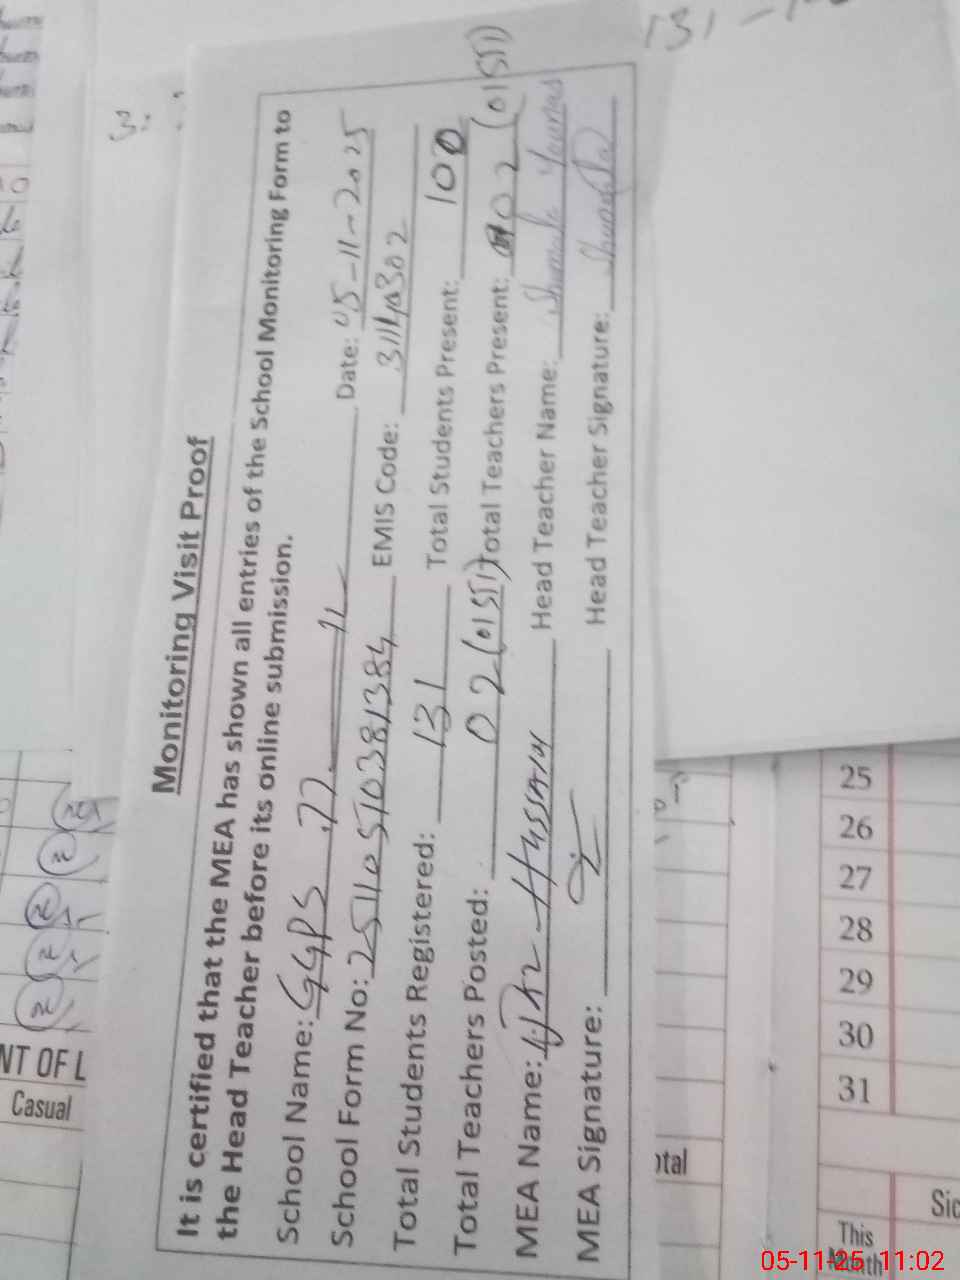 Monitoring Visit Proof
It is certified that the MEA has shown all entries of the School Monitoring Form to
the Head Teacher before its online submission.
School Name: GGPS 77 Date: 05-11-2025
School Form No: 25110510381384 EMIS Code: 31140302
Total Students Registered: 131 Total Students Present: 100
Total Teachers Posted: 02 (01 STI) Total Teachers Present: 02 (01 STI)
MEA Name: Hussain Head Teacher Name:
MEA Signature: Head Teacher Signature:
131
NT OF L
Casual
25
26
27
28
29
30
31
otal
This
Month
Sic
05-11-25 11:02